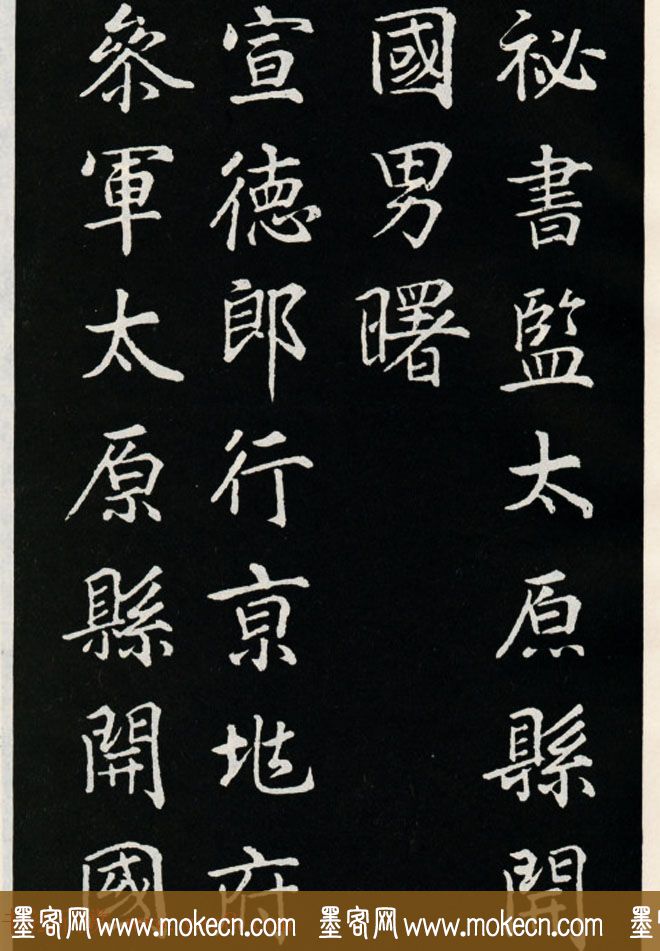 祕書監太原縣開
國男曙
宣德郎行京兆府
叅軍太原縣開國
墨客网 www.mokecn.com 墨客网 www.mokecn.com 墨客网